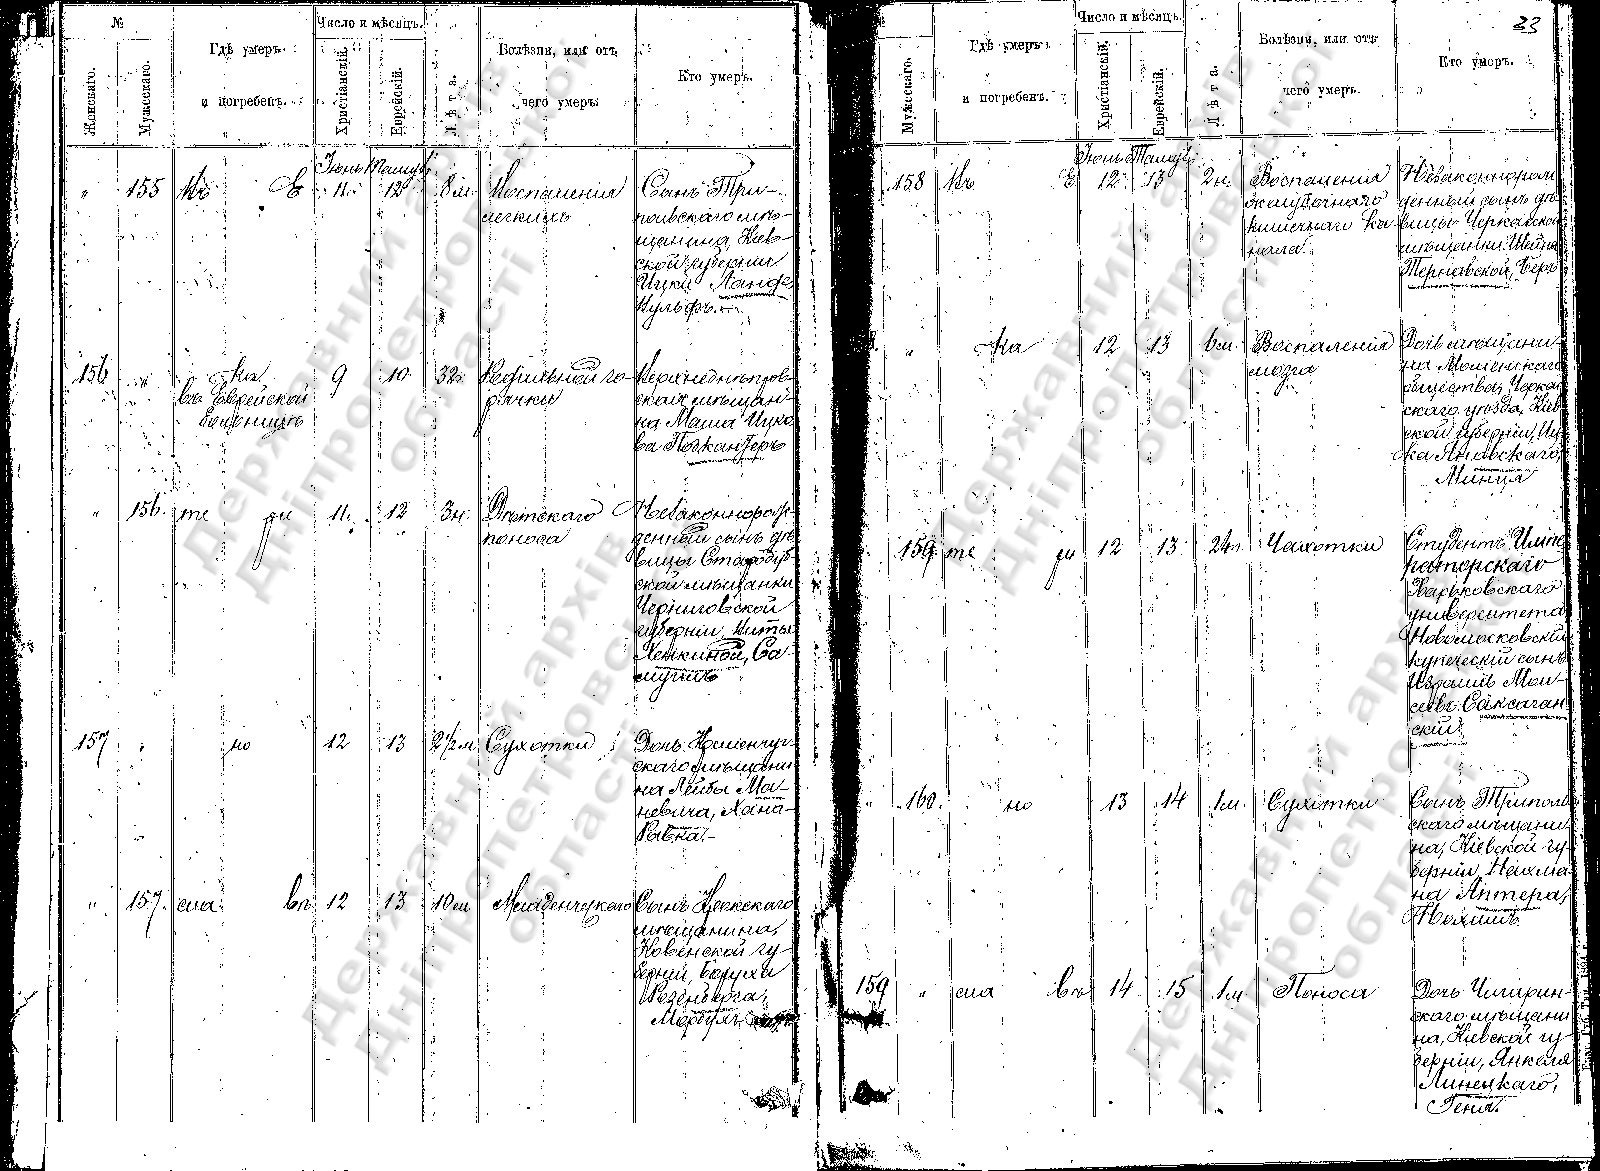 №
Женскаго.
Мужескаго.
Гдѣ умеръ
и погребенъ.
Число и мѣсяцъ.
Христіанскій.
Еврейскій.
Лѣта.
Болѣзни, или отъ
чего умеръ.
Кто умеръ.
Іюнь Тамузъ
" 155 Въ Е 11 12 8 м. Воспаленія
легкихъ
Сынъ Три-
польскаго мѣ-
щанина, Кіев-
ской губерніи
Ицки
Вульфъ.
156 " ка
въ Еврейской
больницѣ
9 10 32 г.
горячки
Верхнеднѣпров-
ская мѣщан-
ка Маша Ицко-
ва
" 156 те ри 11 12 3 н. Дѣтскаго
поноса
Незаконнорож-
денный сынъ дѣ-
вицы Стародуб-
ской мѣщанки
Черниговской
губерніи,
Ханкиной, Са-
муилъ
157 " но 12 13 2½ м. Сухотки
Дочь Кременчуг-
скаго мѣщани-
на Лейбы Ма-
невича, Хана-
Ривка.
" 157 сла въ 12 13 10 м. Младенческаго
Сынъ
мѣщанина,
Ковенской гу-
берніи, Боруха
Розенберга,
33
Мужескаго.
Гдѣ умеръ
и погребенъ.
Число и мѣсяцъ.
Христіанскій.
Еврейскій.
Лѣта.
Болѣзни, или отъ
чего умеръ.
Кто умеръ.
Іюнь Тамузъ
158 Въ Е 12 13 2 н. Воспаленія
желудочнаго
кишечнаго ка-
нала
Незаконнорож-
денный сынъ дѣ-
вицы Черкасской
мѣщанки Шейны
Терновской, Беръ
" ка 12 13 6 м. Воспаленія
мозга
Дочь мѣщани-
на Мошенскаго
общества, Черкас-
скаго уѣзда, Кіев-
ской губерніи, Иц-
ка Яновскаго,
Минця
159 те ри 12 13 24 г. Чахотки
Студентъ Импе-
раторскаго
Харьковскаго
университета
Новомосковскій
купеческій сынъ
Израиль Мои-
сеевъ Саксаган-
скій
" 160 но 13 14 1 м. Сухотки
Сынъ Триполь-
скаго мѣщани-
на, Кіевской гу-
берніи, Нахма-
на Аптера,
159 " сла въ 14 15 1 м. Поноса
Дочь Чигирин-
скаго мѣщани-
на, Кіевской гу-
берніи, Янкеля
Линецкаго,
Геня.
Державний архів
Дніпропетровської
області